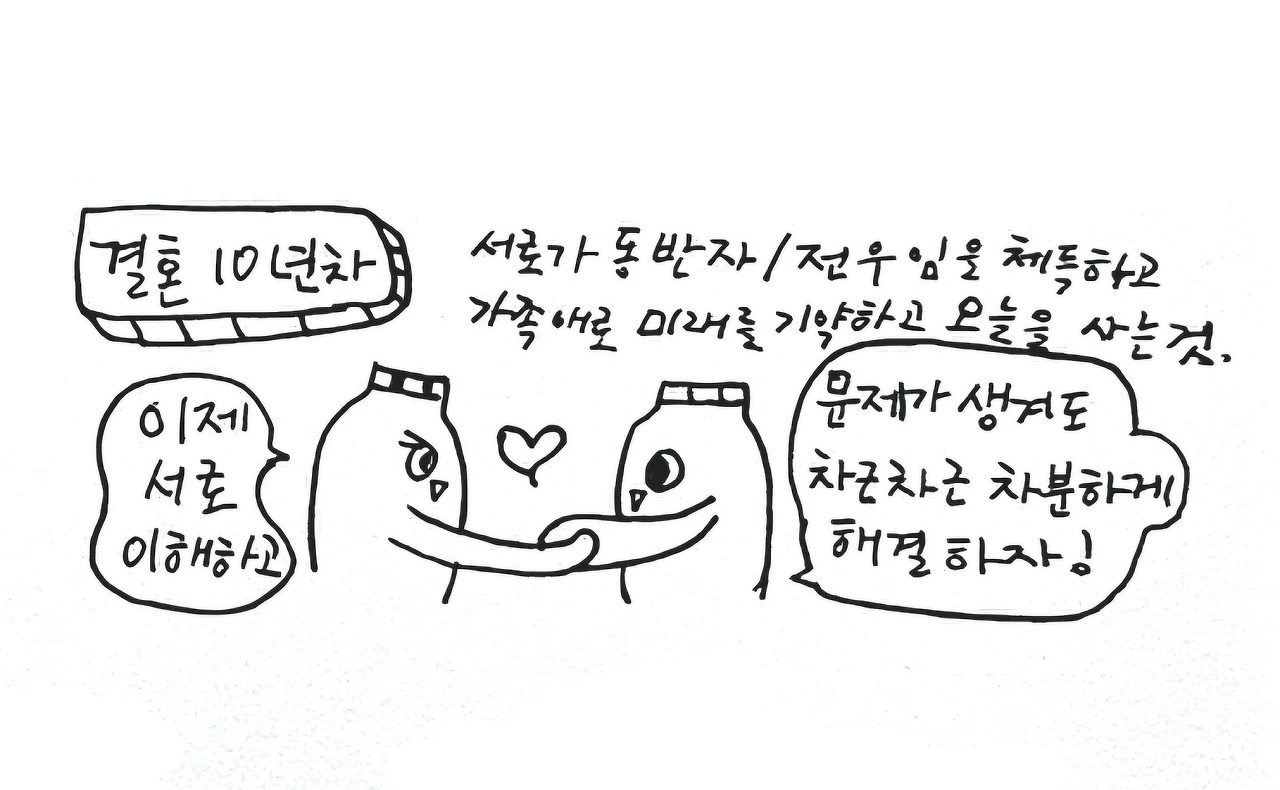 결혼 10년차
서로가 동반자/전우임을 체득하고
가족애로 미래를 기약하고 오늘을 사는것.
이제
서로
이해하고
문제가 생겨도
차근차근 차분하게
해결하자!